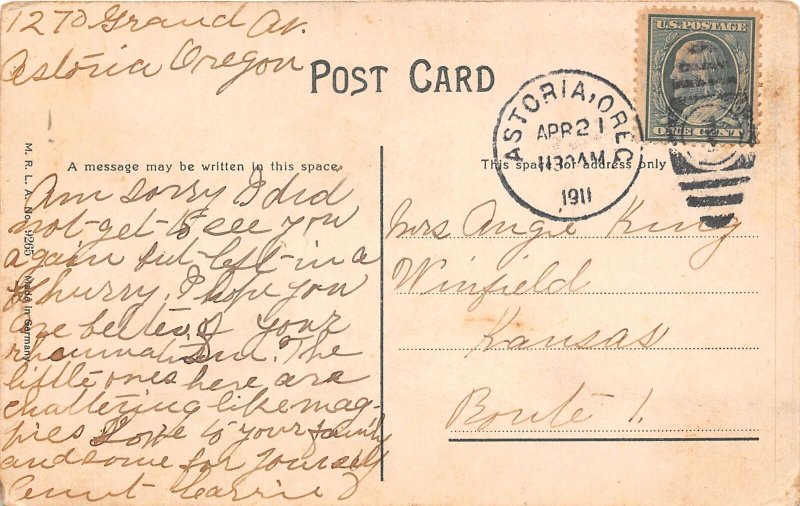 1270 Grand Av.
Astoria Oregon
POST CARD
U.S. POSTAGE
ONE CENT
ASTORIA, OREG
APR 21
1130AM
1911
A message may be written in this space
This space for address only
M. R. L. A. No. 9265 Made in Germany
Am sorry I did
not get to see you
again but left in a
hurry. I hope you
are better of your
rheumatism. The
little ones here are
chattering like mag-
pies Love to your family
and some for yourself
Aunt Carrie
Mrs Angie King
Winfield
Kansas
Route 1.